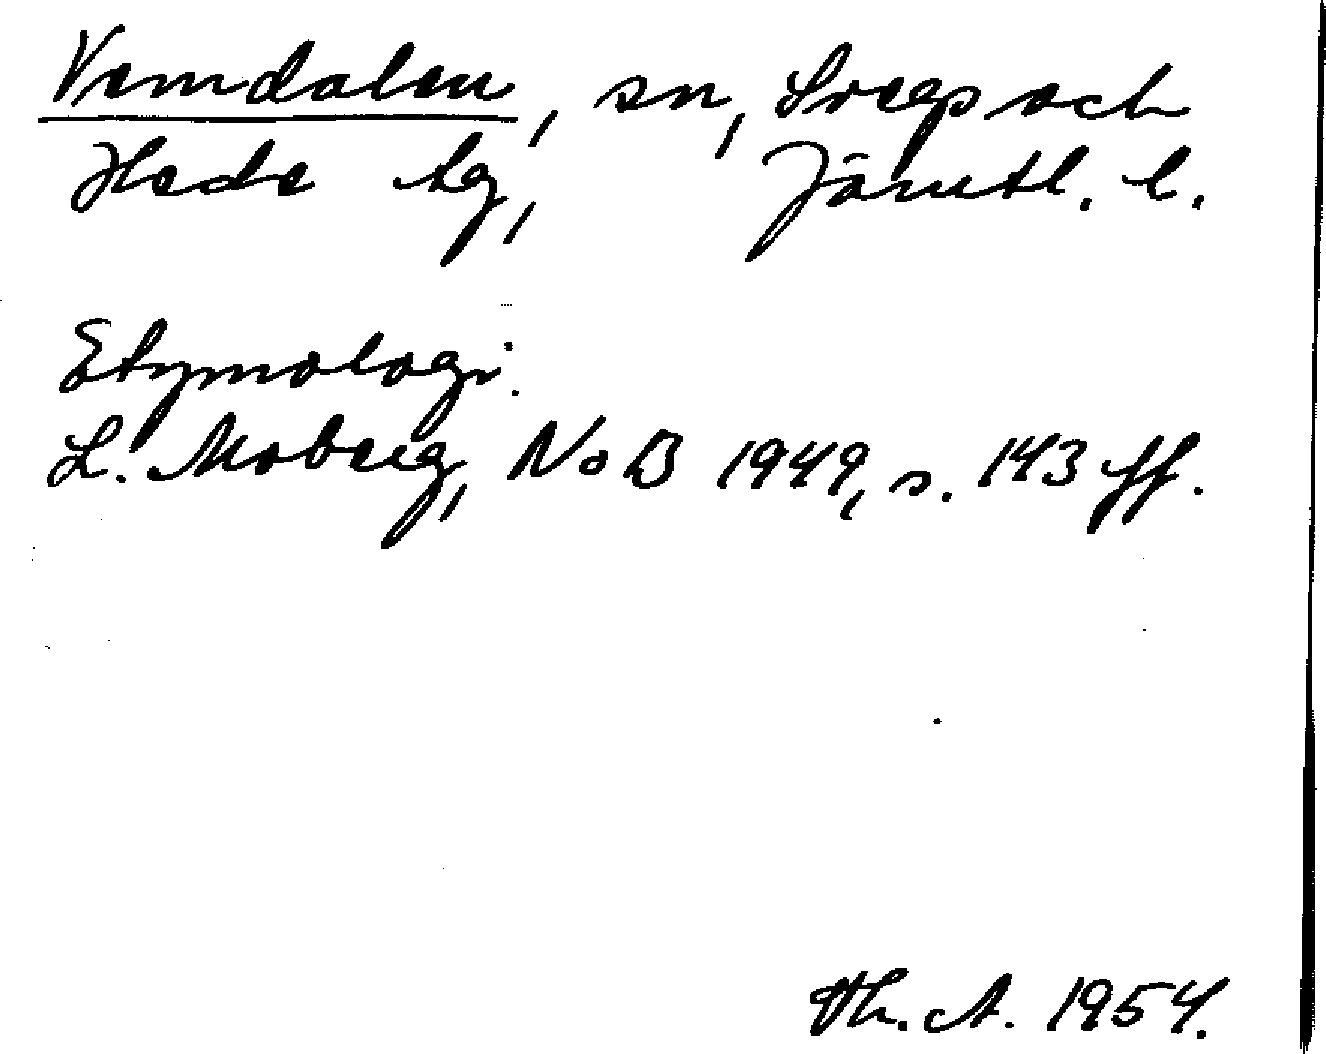 Vemdalen, sn, Svegs och
Hede tg, Jämtl. l.
Etymologi.
L. Moberg, NoB 1949, s. 143 ff.
Th. A. 1954.